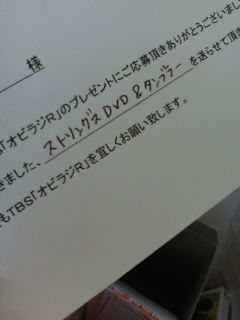 様
BS「オビラジR」のプレゼントにご応募頂きありがとうございまし
きました、ストリングスDVD&タンブラーを送らせて頂き
もTBS「オビラジR」を宜しくお願い致します。